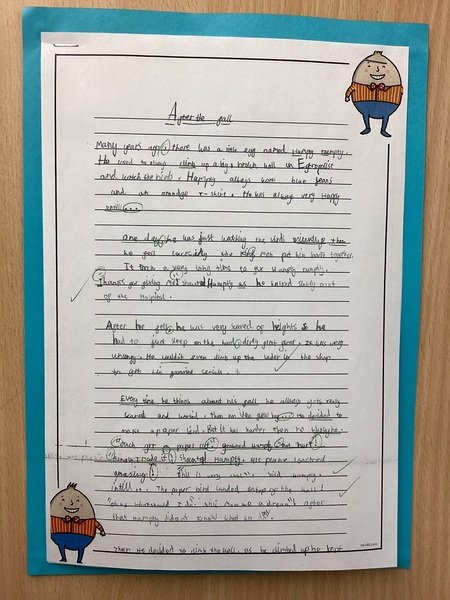 After the fall
Many years ago, There was a little egg named Humpty Dumpty.
He used to always climb up a big brown wall in
and watch the birds. Humpty always wore blue jeans
and an orandge T-shirt. He was always very Happy
untill...
One day, he was just waching the birds Then
he fell Luckily the king men put him back together.
It took a very long time to fix Humpty Dumpty.
Thanks for giving me" shouted Humpty as he walked out
of the Hospital.
After he fell, he was very scared of heights So he
had to just sleep on the hard, dirty floor. It was very
He couldn't even climb up the lader in the shop
to get his cereals.
Every time he things about his fall, he allways gets realy
scared and Then an idea flew by... He decided to
make a paper bird. But it was harder Than he thought.
"Ouch a paper cut!" groaned Humpty that hurt!
I made it!" Humpty. His plane
amazing! "This is very" said Humpty
intill... The paper bird landed onto of the wall!
do! this was a dream" after
that Humpty didn't know what to
Then He decided to climb the wall, as he climbed up he kept